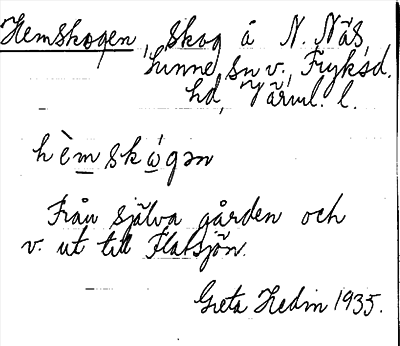 Hemskogen, skog å N. Näs,
Lunne sn v., Fryksd.
hd, Värml. l.
hèmskógən
Från själva gården och
v. ut till Flatsjön.
Greta Hedin 1935.